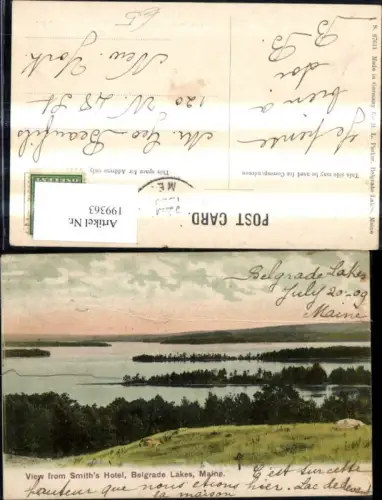 65
Mr. Geo Beaufils
120 W. 48 St
New York
Je pense
bien à
toi
B. B.
This space for Address only
This side may be used for Correspondence
POST CARD.
Made in Germany
Belgrade Lakes, Maine
ME.
Artikel Nr.
199363
Belgrade Lakes
July 20-09
Maine
View from Smith's Hotel, Belgrade Lakes, Maine.
C'est sur cette
hauteur que nous étions hier. Lac de
la maison